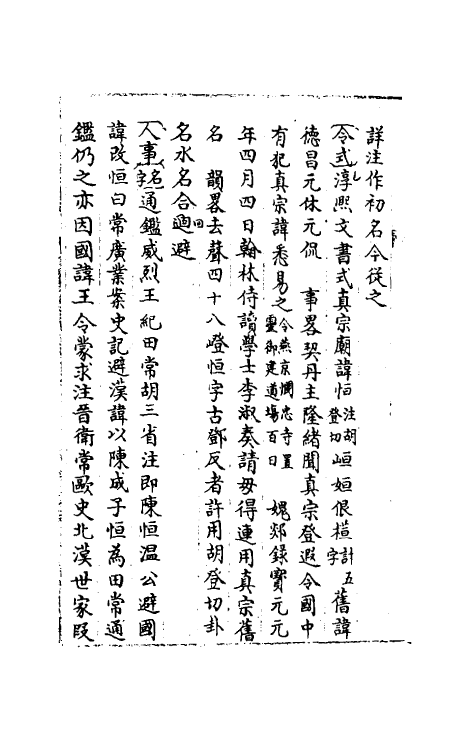 詳注作初名今從之
令式淳熙文書式真宗廟諱恒注胡登切峘姮佷㮓計五字舊諱
德昌元休元侃　事畧契丹主隆緒聞真宗登遐令國中
有犯真宗諱悉易之今燕京憫忠寺置靈御建道場百日　媿郯錄寶元元
年四月四日翰林侍讀學士李淑奏請毋得連用真宗舊
名　韻畧去聲四十八嶝恒字古鄧反者許用胡登切卦
名水名合迴避
人事名字通鑑威烈王紀田常胡三省注即陳恒温公避國
諱改恒曰常廣業案史記避漢諱以陳成子恒為田常通
鑑仍之亦因國諱王令蒙求注晉衛常歐史北漢世家段